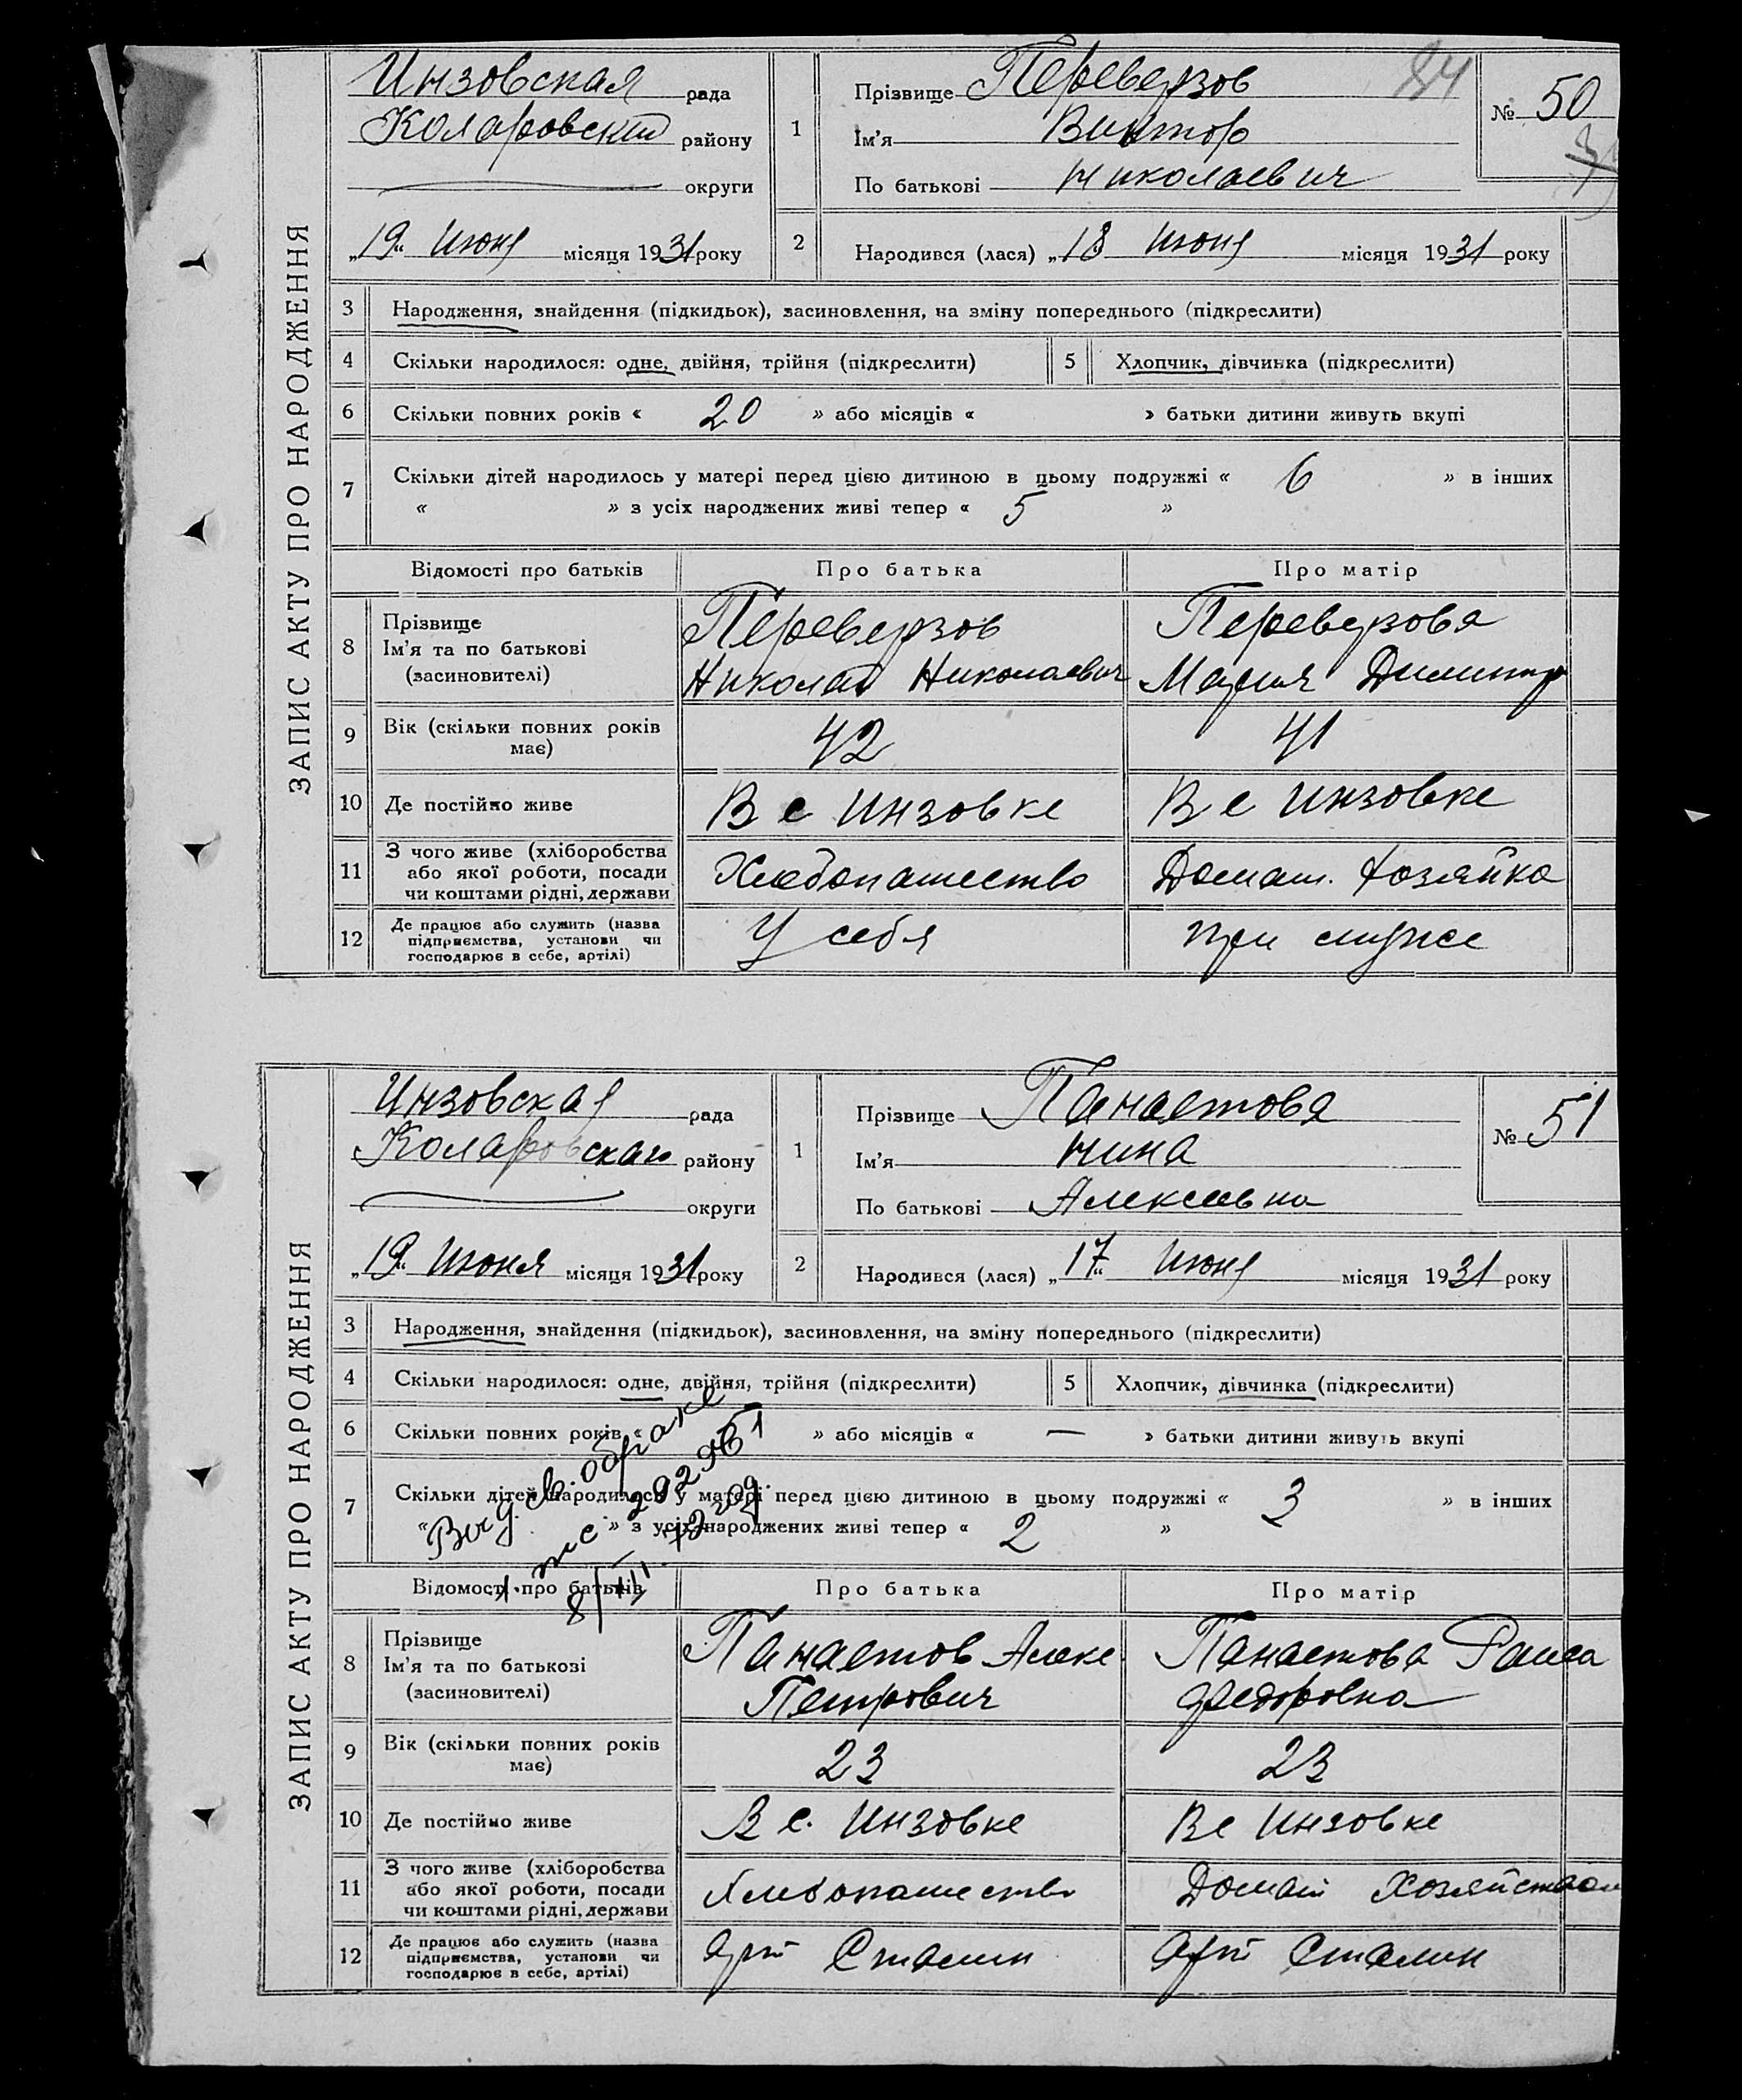 ЗАПИС АКТУ ПРО НАРОДЖЕННЯ
Инзовская рада
Коларовский району
округи
„19“ Июня місяця 1931 року
1 Прізвище Переверзов
Ім'я Виктор
По батькові Николаевич
84
№ 50
2 Народився (лася) „18 Июня місяця 1931 року
3 Народження, знайдення (підкидьок), засиновлення, на зміну попереднього (підкреслити)
4 Скільки народилося: одне, двійня, трійня (підкреслити) 5 Хлопчик, дівчинка (підкреслити)
6 Скільки повних років « 20 » або місяців « » батьки дитини живуть вкупі
7 Скільки дітей народилось у матері перед цією дитиною в цьому подружжі « 6 » в інших
« » з усіх народжених живі тепер « 5 »
Відомості про батьків Про батька Про матір
8 Прізвище Ім'я та по батькові (засиновителі)
Переверзов Переверзова
Николай Николаевич Мария Димитр
9 Вік (скільки повних років має) 42 41
10 Де постійно живе В с Инзовке В с Инзовке
11 З чого живе (хліборобства або якої роботи, посади чи коштами рідні, держави Хлебопашество Домаш. хозяйка
12 Де працює або служить (назва підприємства, установи чи господарює в себе, артілі) У себя при муже
ЗАПИС АКТУ ПРО НАРОДЖЕННЯ
Инзовская рада
Коларовскаго району
округи
„19“ Июня місяця 1931 року
1 Прізвище Панаетова
Ім'я Нина
По батькові Алексеевна
№ 51
2 Народився (лася) „17“ Июня місяця 1931 року
3 Народження, знайдення (підкидьок), засиновлення, на зміну попереднього (підкреслити)
4 Скільки народилося: одне, двійня, трійня (підкреслити) 5 Хлопчик, дівчинка (підкреслити)
6 Скільки повних років « » або місяців « — » батьки дитини живуть вкупі
7 Скільки дітей народилось у матері перед цією дитиною в цьому подружжі « 3 » в інших
« » з усіх народжених живі тепер « 2 »
Выд. св. о браке
Відомості про батьків Про батька Про матір
8 Прізвище Ім'я та по батькові (засиновителі)
Панаетов Алекс Панаетова Раиса
Петрович Федоровна
9 Вік (скільки повних років має) 23 23
10 Де постійно живе В с. Инзовке В с Инзовке
11 З чого живе (хліборобства або якої роботи, посади чи коштами рідні, держави Хлебопашество Домаш
12 Де працює або служить (назва підприємства, установи чи господарює в себе, артілі) Арт Сталин Арт Сталин